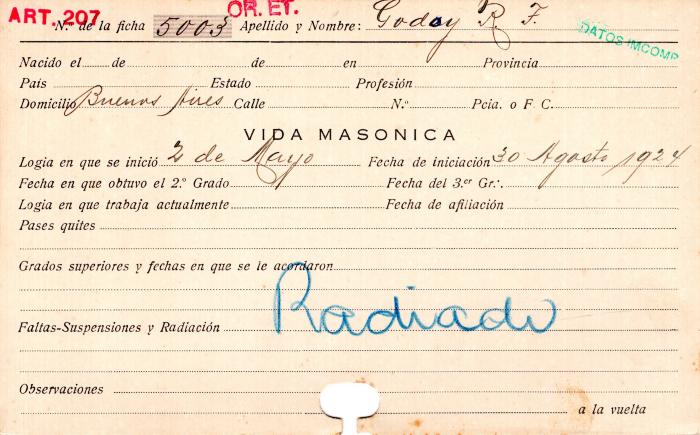 ART. 207 OR. ET. DATOS IMCOMP
N.º de la ficha 5003 Apellido y Nombre: Godoy R. F.
Nacido el de de en Provincia
País Estado Profesión
Domicilio Buenos Aires Calle N.º Pcia. o F C.
VIDA MASONICA
Logia en que se inició 2 de Mayo Fecha de iniciación 30 Agosto 1924
Fecha en que obtuvo el 2.º Grado Fecha del 3.er Gr∴
Logia en que trabaja actualmente Fecha de afiliación
Pases quites
Grados superiores y fechas en que se le acordaron
Faltas-Suspensiones y Radiación Radiado
Observaciones
a la vuelta